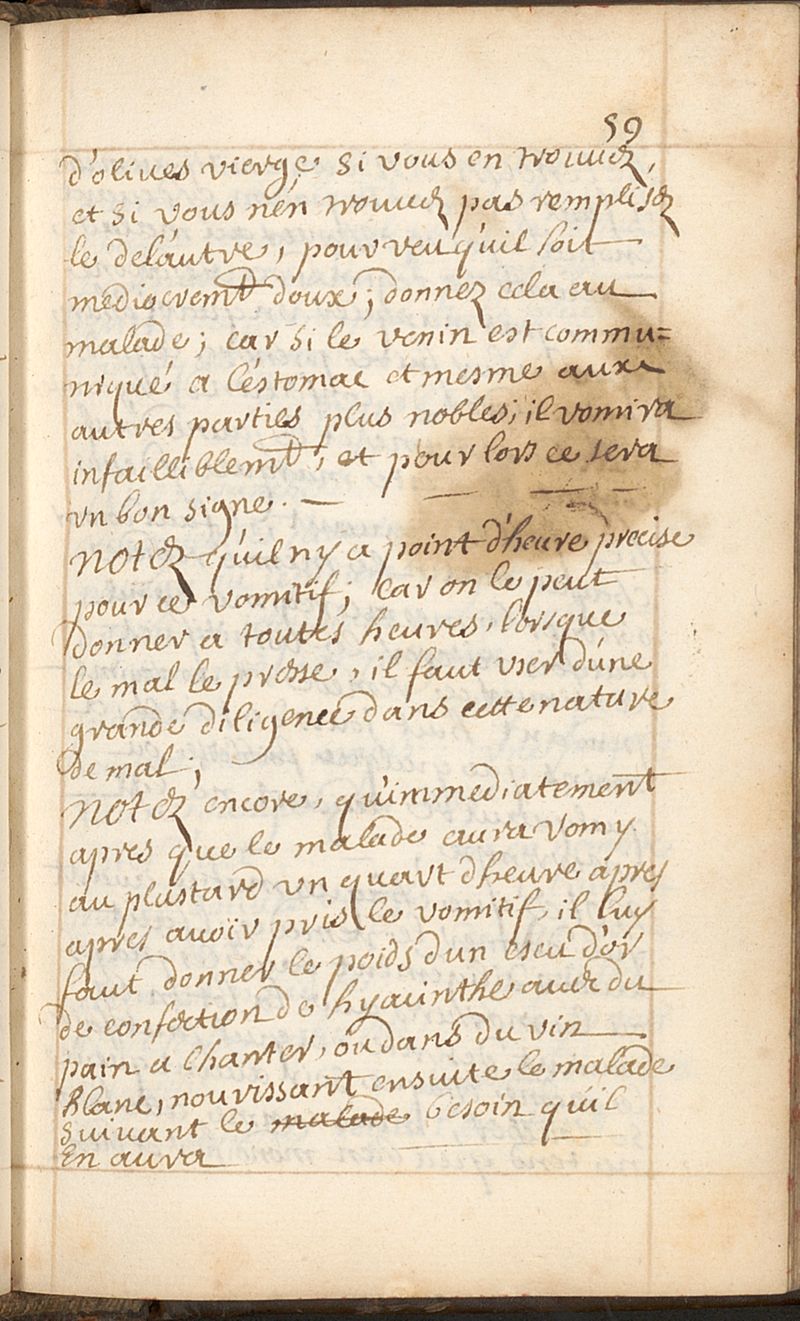 59
d'oliues vierge si vous en trouuez,
et si vous n'en trouuez pas remplisez
le de l'autre, pourveu qu'il soit
mediocremt doux; donnez cela au
malade; car si le venin est commu=
niqué a l'estomac et mesme aux
autres parties plus nobles, il vomira
infailliblemt, et pour lors ce sera
vn bon signe. —
notez qu'il ny a point d'heure precise
pour ce vomitif; car on le peut
donner a toutes heures, lorsque
le mal le presse, il faut vser d'une
grande diligence dans cette nature
de mal;
notez encore, qu'immediatement
apres que le malade aura vomy
au plustard vn quart dheure apres
apres auoir pris le vomitif, il luy
faut donner le poids dun escu d'or
de confection de hyacinthe auec du
pain a chanter, ou dans du vin
blanc, nourissant ensuite le malade
suivant le malade besoin qu'il
En aura